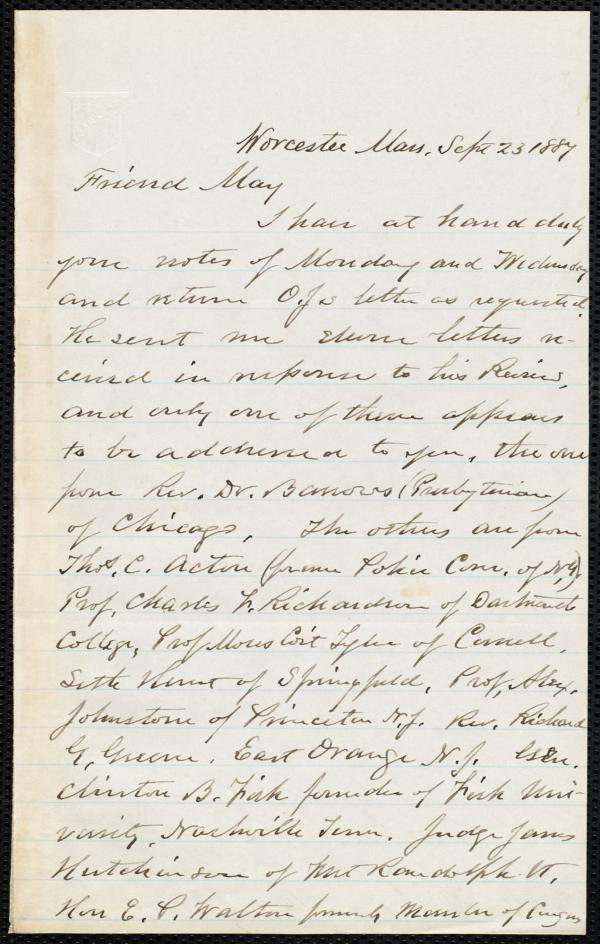 Worcester Mass. Sept 23 1887
Friend May
I have at hand duly
your notes of Monday and Wednesday
and return O.J.s letter as requested.
He sent me eleven letters re-
ceived in response to his Review,
and only one of them appears
to be addressed to you, the one
from Rev. Dr. Barrows (Presbyterian)
of Chicago, The others are from
Thos. C. Acton (former Police Com. of N.Y.)
Prof. Charles F. Richardson of Dartmouth
College, Prof. Moses Coit Tyler of Cornell,
Seth Hunt of Springfield, Prof. Alex.
Johnstone of Princeton N.J. Rev. Richard
G. Greene, East Orange N.J. Gen.
Clinton B. Fisk founder of Fisk Uni-
versity, Nashville Tenn. Judge James
Hutchinson of West Randolph Vt.
Hon E. P. Walton formerly Member of Congress